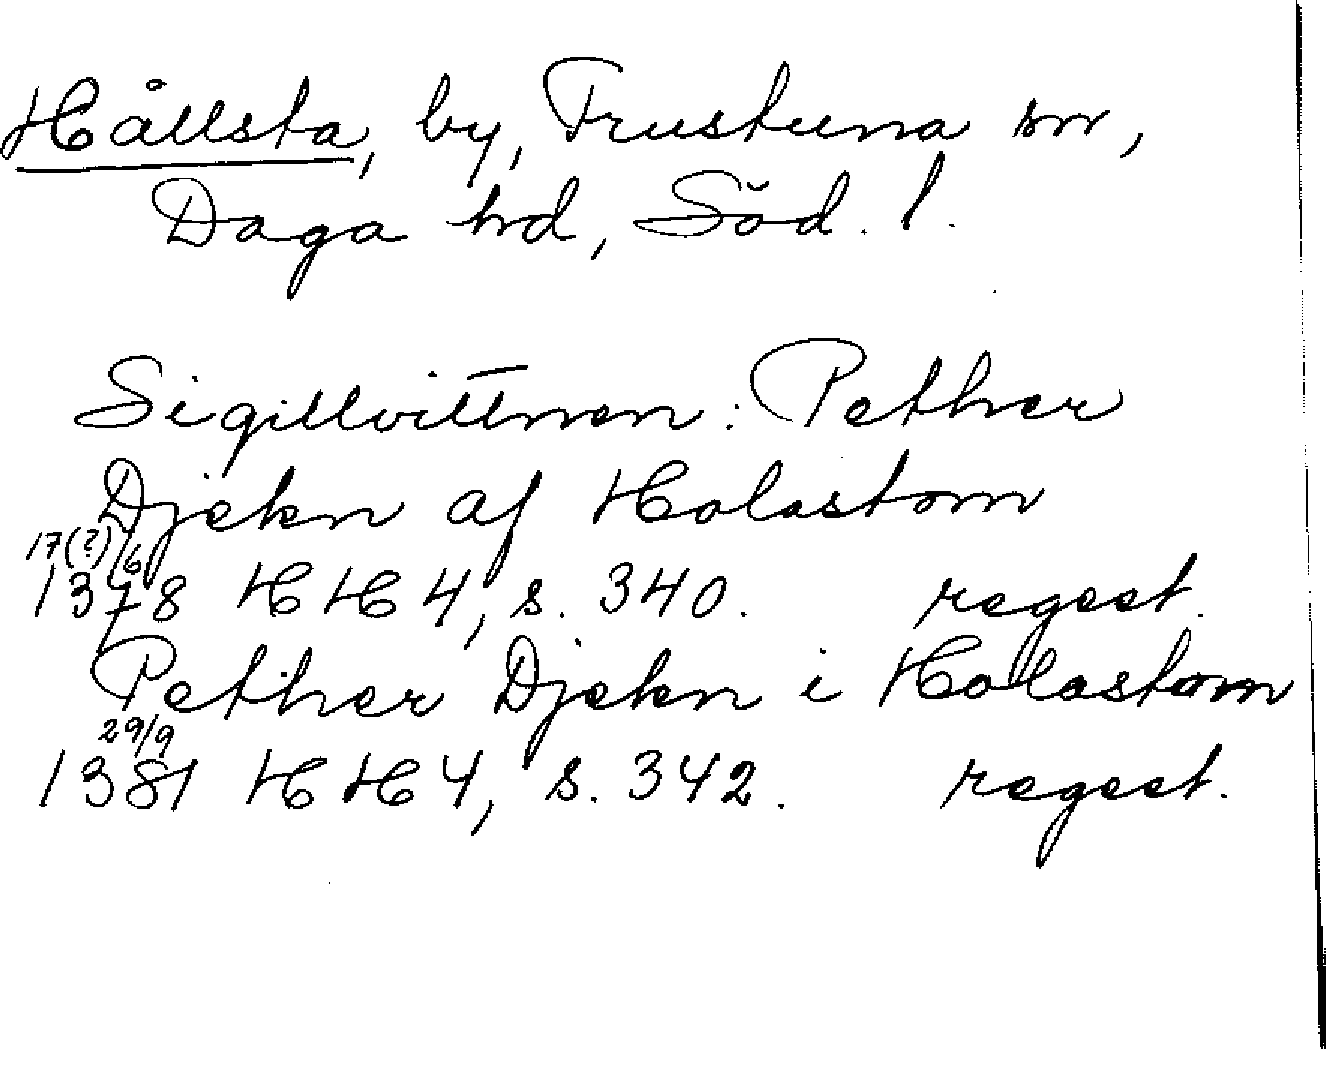 Hållsta, by, Frustuna sn,
Daga hd, Söd. l.
Sigillvittnen: Pether
Djekn af Holastom
17(?)/6
1378 HH 4, s. 340. regest.
Pether Djekn i Holastom
29/9
1381 HH 4, s. 342. regest.